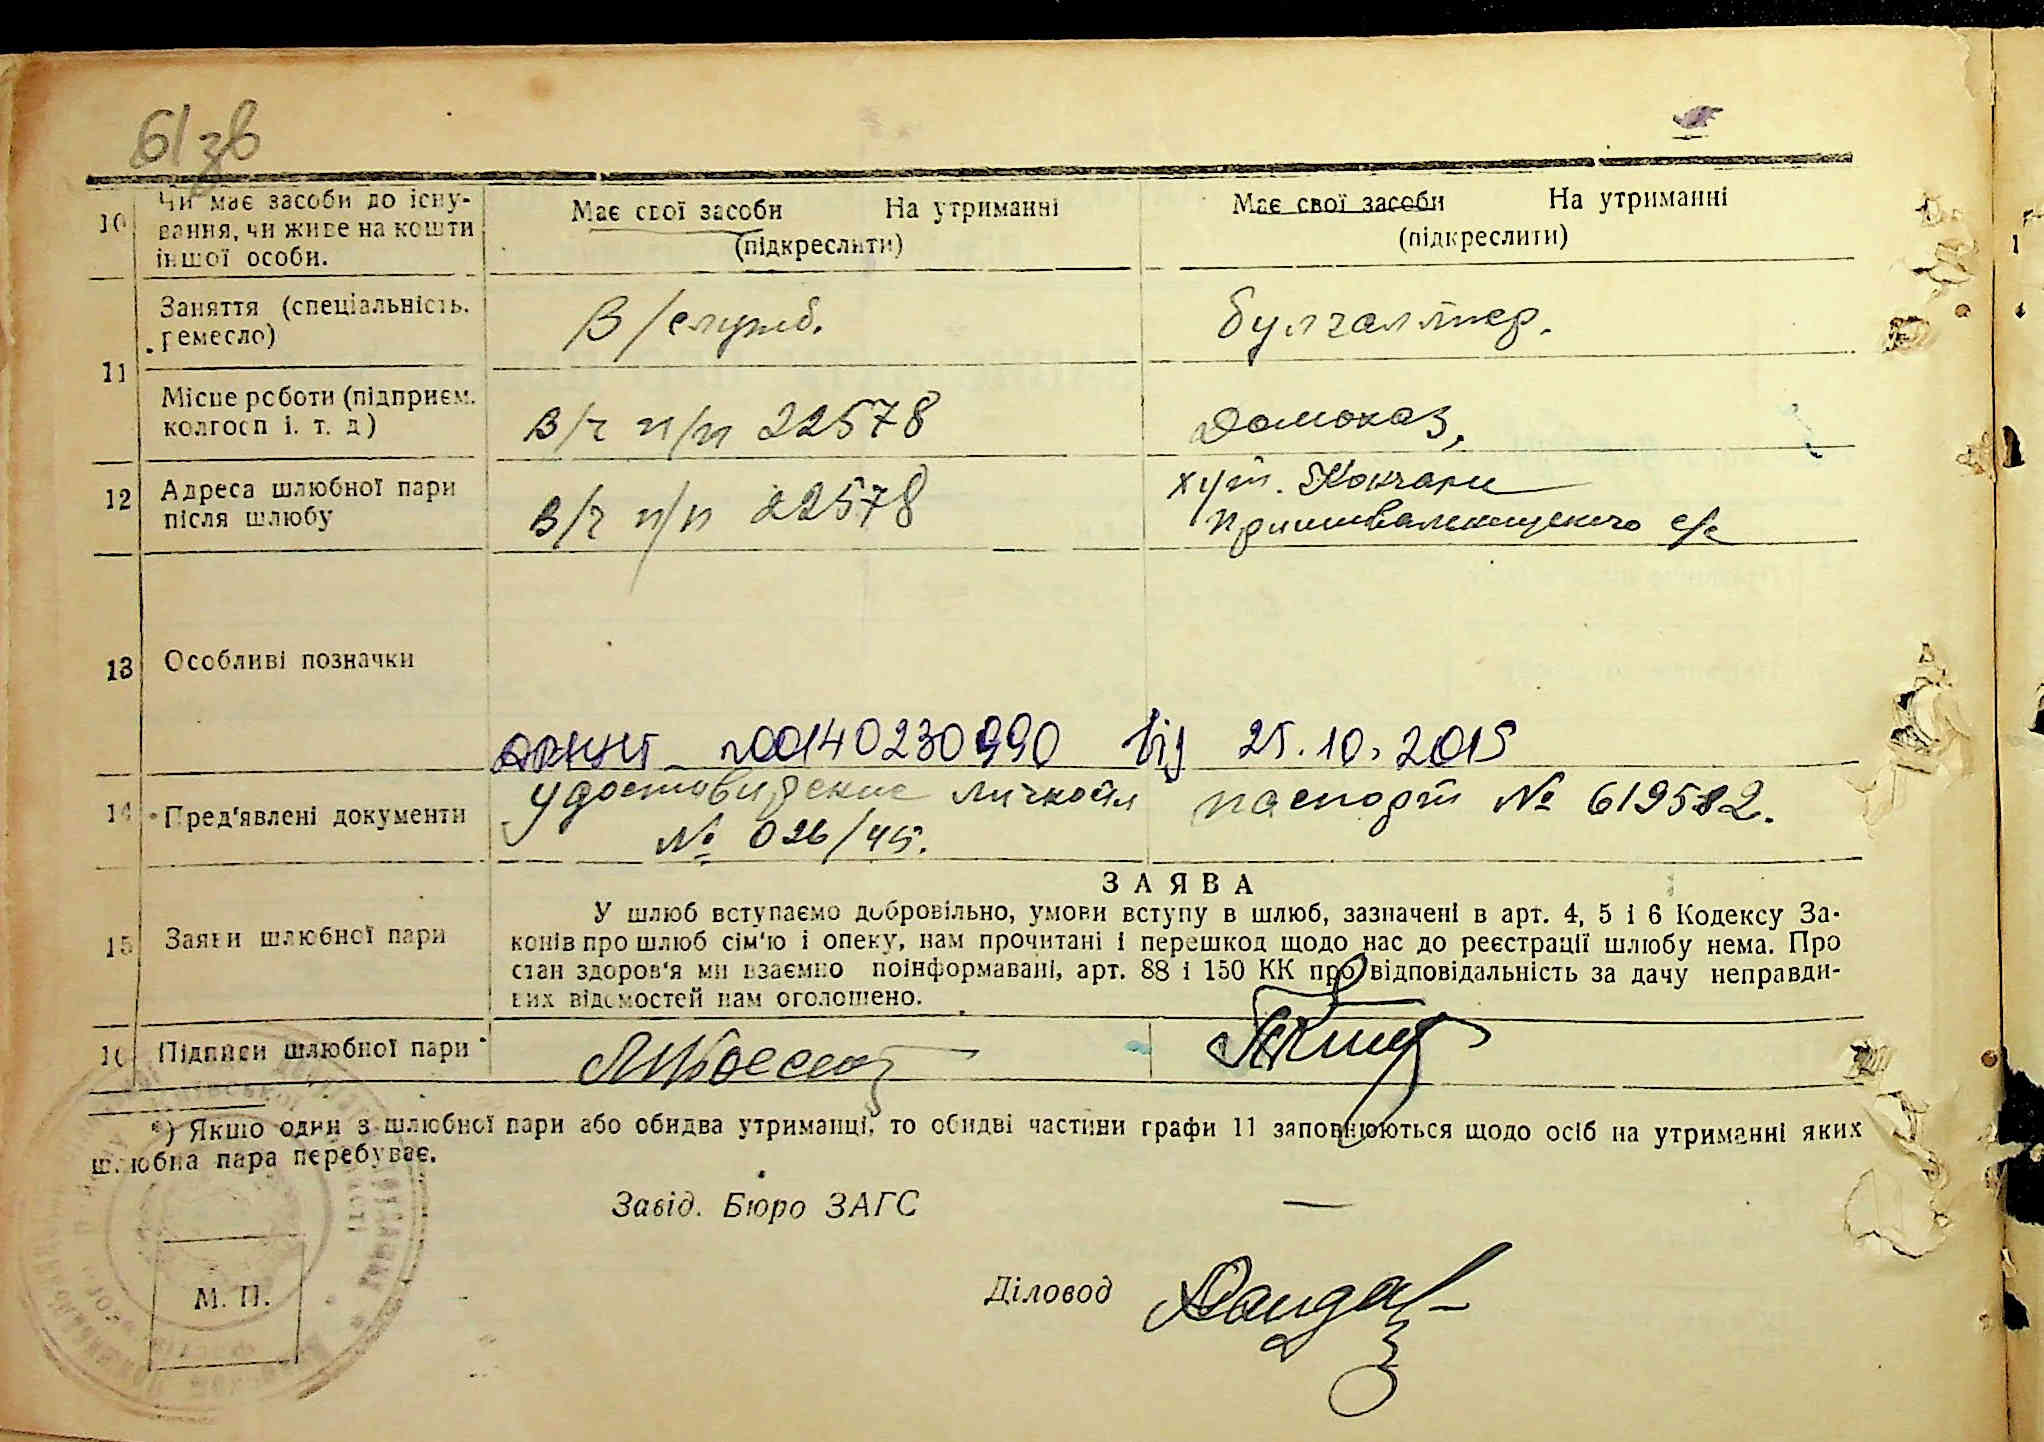 61зв
10 Чи має засоби до існу-
вання, чи живе на кошти
іншої особи.
Має свої засоби На утриманні
(підкреслити)
Має свої засоби На утриманні
(підкреслити)
11 Заняття (спеціальність.
ремесло)
В/служб.
бухгалтер.
Місце роботи (підприєм.
колгосп і. т. д)
В/ч п/п 22578
12 Адреса шлюбної пари
після шлюбу
В/ч п/п 22578
хут.
с/с
13 Особливі позначки
n00140230990 від 25.10.2015
14 Пред'явлені документи
удостовирение личной
№ 026/45.
паспорт № 619582.
15 Заяви шлюбної пари
ЗАЯВА
У шлюб вступаємо добровільно, умови вступу в шлюб, зазначені в арт. 4, 5 і 6 Кодексу За-
конів про шлюб сім'ю і опеку, нам прочитані і перешкод щодо нас до реєстрації шлюбу нема. Про
стан здоров'я ми взаємно поінформавані, арт. 88 і 150 КК про відповідальність за дачу неправди-
вих відомостей нам оголошено.
16 Підписи шлюбної пари
*) Якшо один з шлюбної пари або обидва утриманці, то обидві частини графи 11 заповнюються щодо осіб на утриманні яких
шлюбна пара перебуває.
Завід. Бюро ЗАГС —
Діловод
М. П.